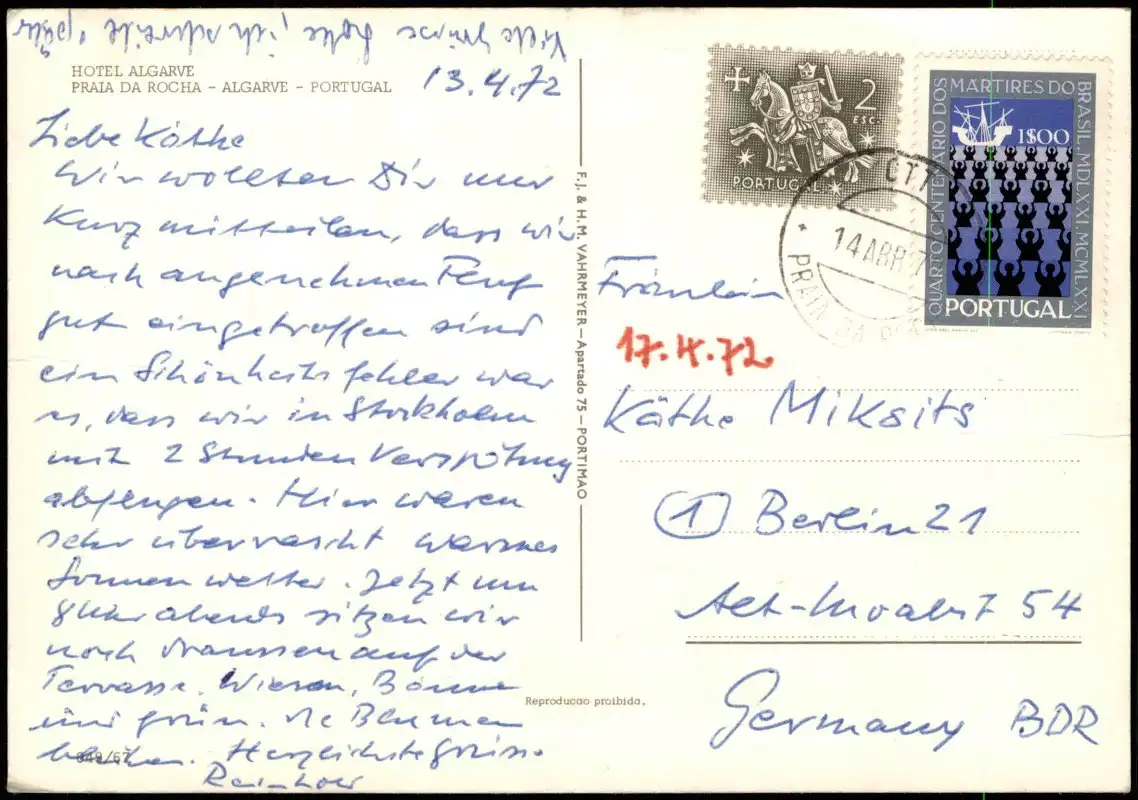 Viele Grüsse Lotte, ich schreibe später
HOTEL ALGARVE
PRAIA DA ROCHA - ALGARVE - PORTUGAL
13.4.72
Liebe Käthe
Wir wollten Dir nur
kurz mitteilen, dass wir
nach angenehmen Flug
gut eingetroffen sind
ein Schönheitsfehler war
es, dass wir in Stockholm
mit 2 Stunden Verspätung
abflogen. Hier waren
sehr überrascht warmes
Sonnenwetter. Jetzt um
8 Uhr abends sitzen wir
noch draussen auf der
Terrasse. Wiesen, Bäume
sind grün. die Blumen
blühen. Herzlichste Grüsse
049/67
F.J. & H.M. VAHRMEYER - Apartado 75 - PORTIMAO
Reproducao proibida.
2
ESC.
PORTUGAL
QUARTO CENTENÁRIO DOS MÁRTIRES DO BRASIL. MDLXXI. MCMLXXI
1$00
PORTUGAL
CTT
14 ABR 7
PRAIA DA
Fräulein
17.4.72
Käthe Miksits
1 Berlin 21
Alt-Moabit 54
Germany BDR